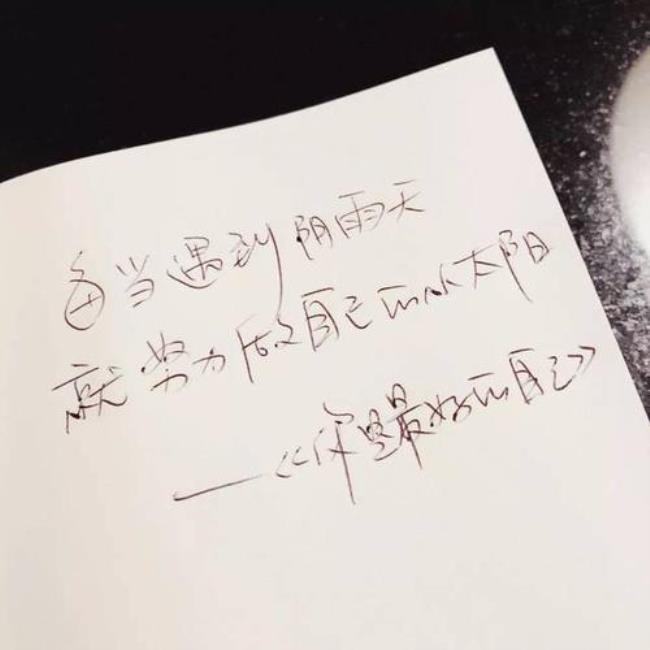 每当遇到阴雨天
就努力做自己的小太阳
——《你是最好的自己》